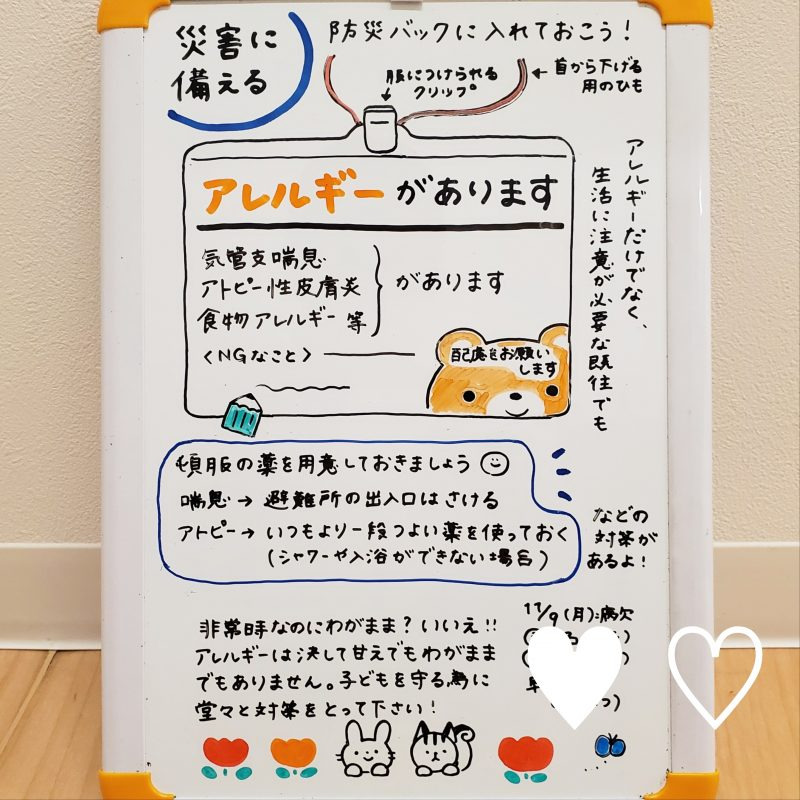 災害に
備える
防災バックに入れておこう！
服につけられる
クリップ。
← 首から下げる
用のひも
アレルギーがあります
気管支喘息
アトピー性皮膚炎
食物アレルギー 等
があります
〈NGなこと〉
配慮をお願い
します
アレルギーだけでなく、
生活に注意が必要な既往でも
などの
対策が
あるよ！
頓服の薬を用意しておきましょう
喘息 → 避難所の出入口はさける
アトピー → いつもより一段つよい薬を使っておく
(シャワーや入浴ができない場合)
非常時なのにわがまま？いいえ!!
アレルギーは決して甘えでもわがまま
でもありません。子どもを守る為に
堂々と対策をとって下さい！
11/9(月):病欠